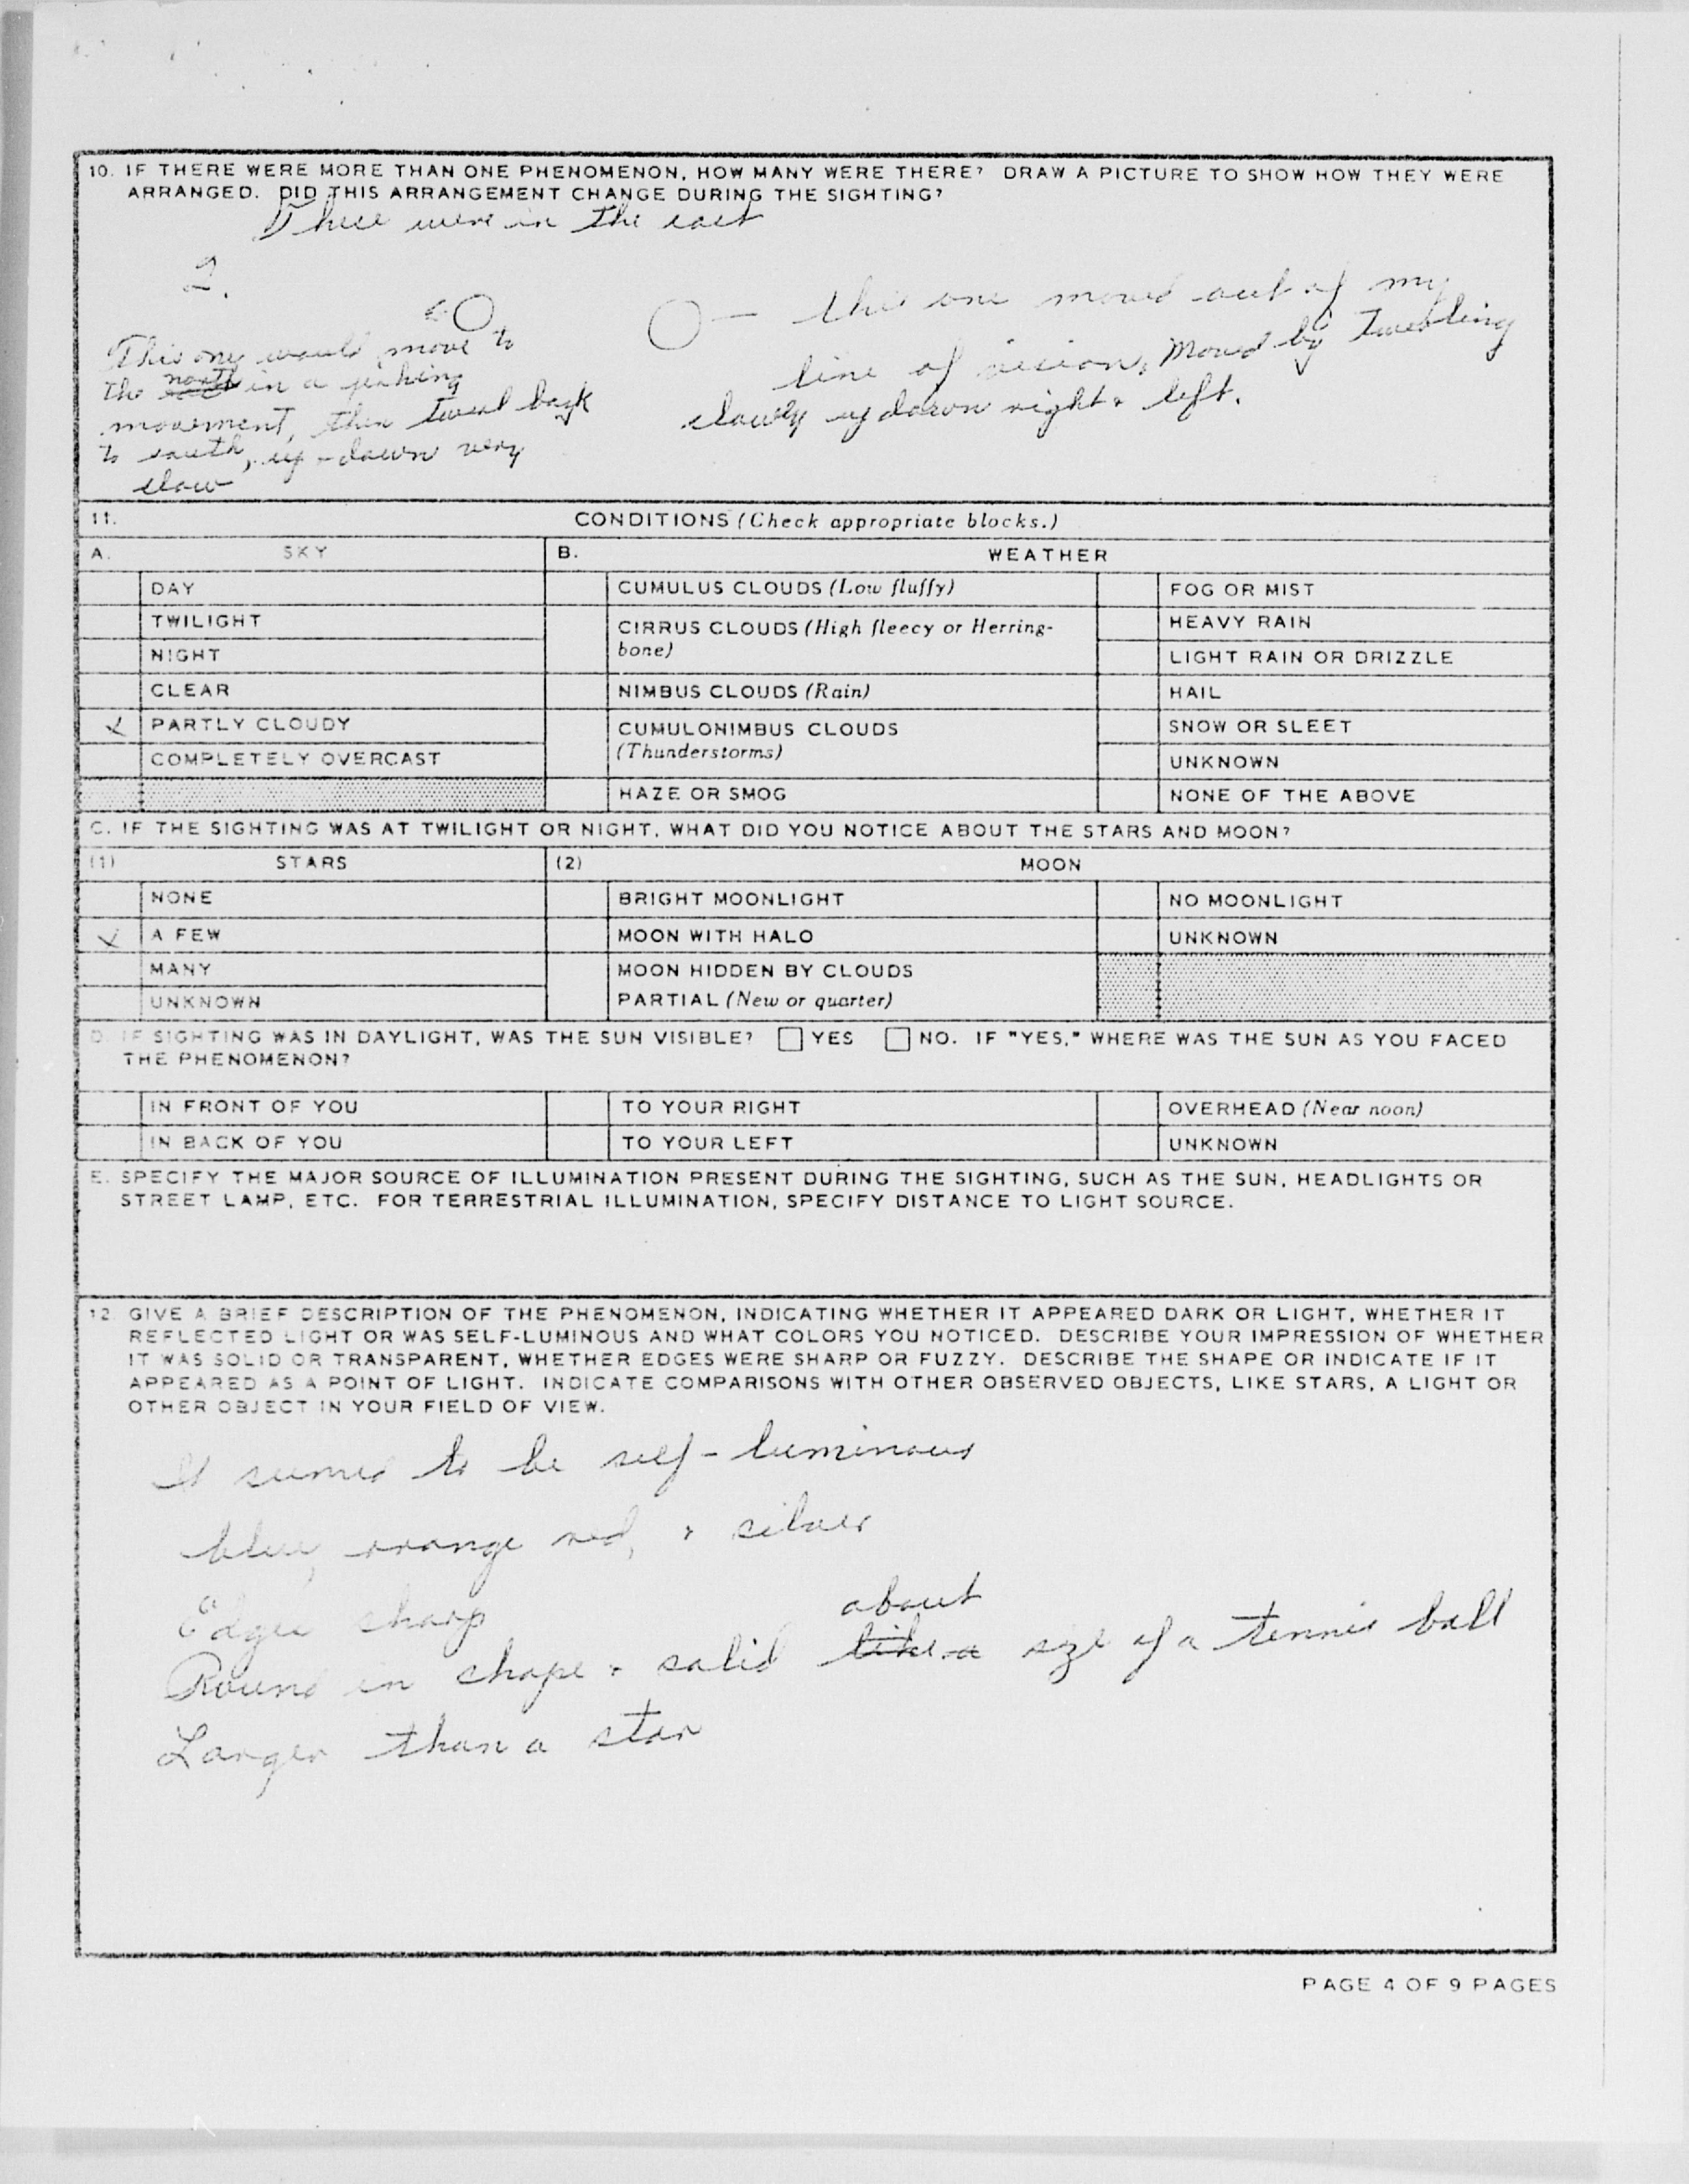 10. IF THERE WERE MORE THAN ONE PHENOMENON, HOW MANY WERE THERE? DRAW A PICTURE TO SHOW HOW THEY WERE
ARRANGED. DID THIS ARRANGEMENT CHANGE DURING THE SIGHTING?
These were in the east
2.
This one would move to
the north in a jerking
movement, then back
to south, up - down very
slow
this one moved out of my
line of vision, moved by
slowly up down right + left.
11. CONDITIONS (Check appropriate blocks.)
A. SKY B. WEATHER
DAY CUMULUS CLOUDS (Low fluffy) FOG OR MIST
TWILIGHT CIRRUS CLOUDS (High fleecy or Herring-
bone) HEAVY RAIN
NIGHT LIGHT RAIN OR DRIZZLE
CLEAR NIMBUS CLOUDS (Rain) HAIL
✓ PARTLY CLOUDY CUMULONIMBUS CLOUDS
(Thunderstorms) SNOW OR SLEET
COMPLETELY OVERCAST UNKNOWN
HAZE OR SMOG NONE OF THE ABOVE
C. IF THE SIGHTING WAS AT TWILIGHT OR NIGHT, WHAT DID YOU NOTICE ABOUT THE STARS AND MOON?
(1) STARS (2) MOON
NONE BRIGHT MOONLIGHT NO MOONLIGHT
✓ A FEW MOON WITH HALO UNKNOWN
MANY MOON HIDDEN BY CLOUDS
UNKNOWN PARTIAL (New or quarter)
D. IF SIGHTING WAS IN DAYLIGHT, WAS THE SUN VISIBLE? YES NO. IF "YES," WHERE WAS THE SUN AS YOU FACED
THE PHENOMENON?
IN FRONT OF YOU TO YOUR RIGHT OVERHEAD (Near noon)
IN BACK OF YOU TO YOUR LEFT UNKNOWN
E. SPECIFY THE MAJOR SOURCE OF ILLUMINATION PRESENT DURING THE SIGHTING, SUCH AS THE SUN, HEADLIGHTS OR
STREET LAMP, ETC. FOR TERRESTRIAL ILLUMINATION, SPECIFY DISTANCE TO LIGHT SOURCE.
12. GIVE A BRIEF DESCRIPTION OF THE PHENOMENON, INDICATING WHETHER IT APPEARED DARK OR LIGHT, WHETHER IT
REFLECTED LIGHT OR WAS SELF-LUMINOUS AND WHAT COLORS YOU NOTICED. DESCRIBE YOUR IMPRESSION OF WHETHER
IT WAS SOLID OR TRANSPARENT, WHETHER EDGES WERE SHARP OR FUZZY. DESCRIBE THE SHAPE OR INDICATE IF IT
APPEARED AS A POINT OF LIGHT. INDICATE COMPARISONS WITH OTHER OBSERVED OBJECTS, LIKE STARS, A LIGHT OR
OTHER OBJECT IN YOUR FIELD OF VIEW.
It seemed to be self-luminous
blue, orange red, + silver
Edges sharp
about
Round in shape + solid like a size of a tennis ball
Larger than a star
PAGE 4 OF 9 PAGES